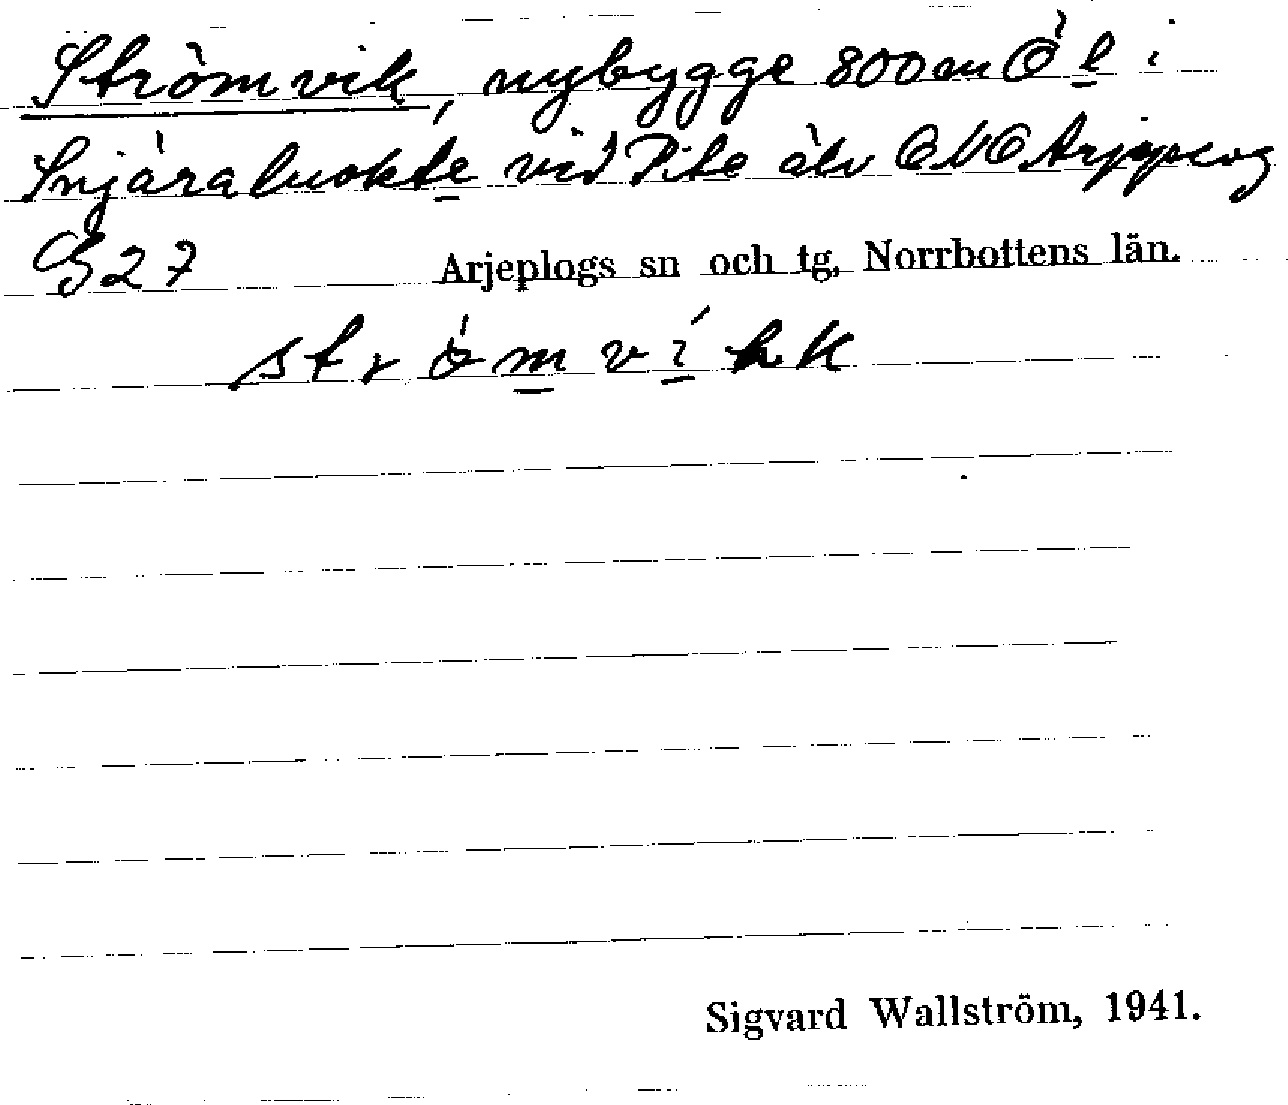 Strömvik, nybygge 800 m Ö l i
Snjäraluokte vid Pite älv ONO Arjeplog
G27 Arjeplogs sn och tg, Norrbottens län.
strömvíkk
Sigvard Wallström, 1941.